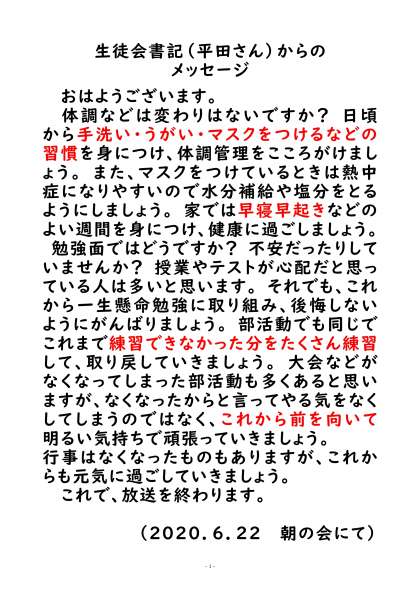 生徒会書記(平田さん)からの
メッセージ
おはようございます。
体調などは変わりはないですか? 日頃
から手洗い・うがい・マスクをつけるなどの
習慣を身につけ、体調管理をこころがけまし
ょう。また、マスクをつけているときは熱中
症になりやすいので水分補給や塩分をとる
ようにしましょう。家では早寝早起きなどの
よい週間を身につけ、健康に過ごしましょう。
勉強面ではどうですか? 不安だったりして
いませんか? 授業やテストが心配だと思っ
ている人は多いと思います。それでも、これ
から一生懸命勉強に取り組み、後悔しない
ようにがんばりましょう。部活動でも同じで
これまで練習できなかった分をたくさん練習
して、取り戻していきましょう。大会などが
なくなってしまった部活動も多くあると思い
ますが、なくなったからと言ってやる気をなく
してしまうのではなく、これから前を向いて
明るい気持ちで頑張っていきましょう。
行事はなくなったものもありますが、これか
らも元気に過ごしていきましょう。
これで、放送を終わります。
(2020.6.22 朝の会にて)
- 1 -